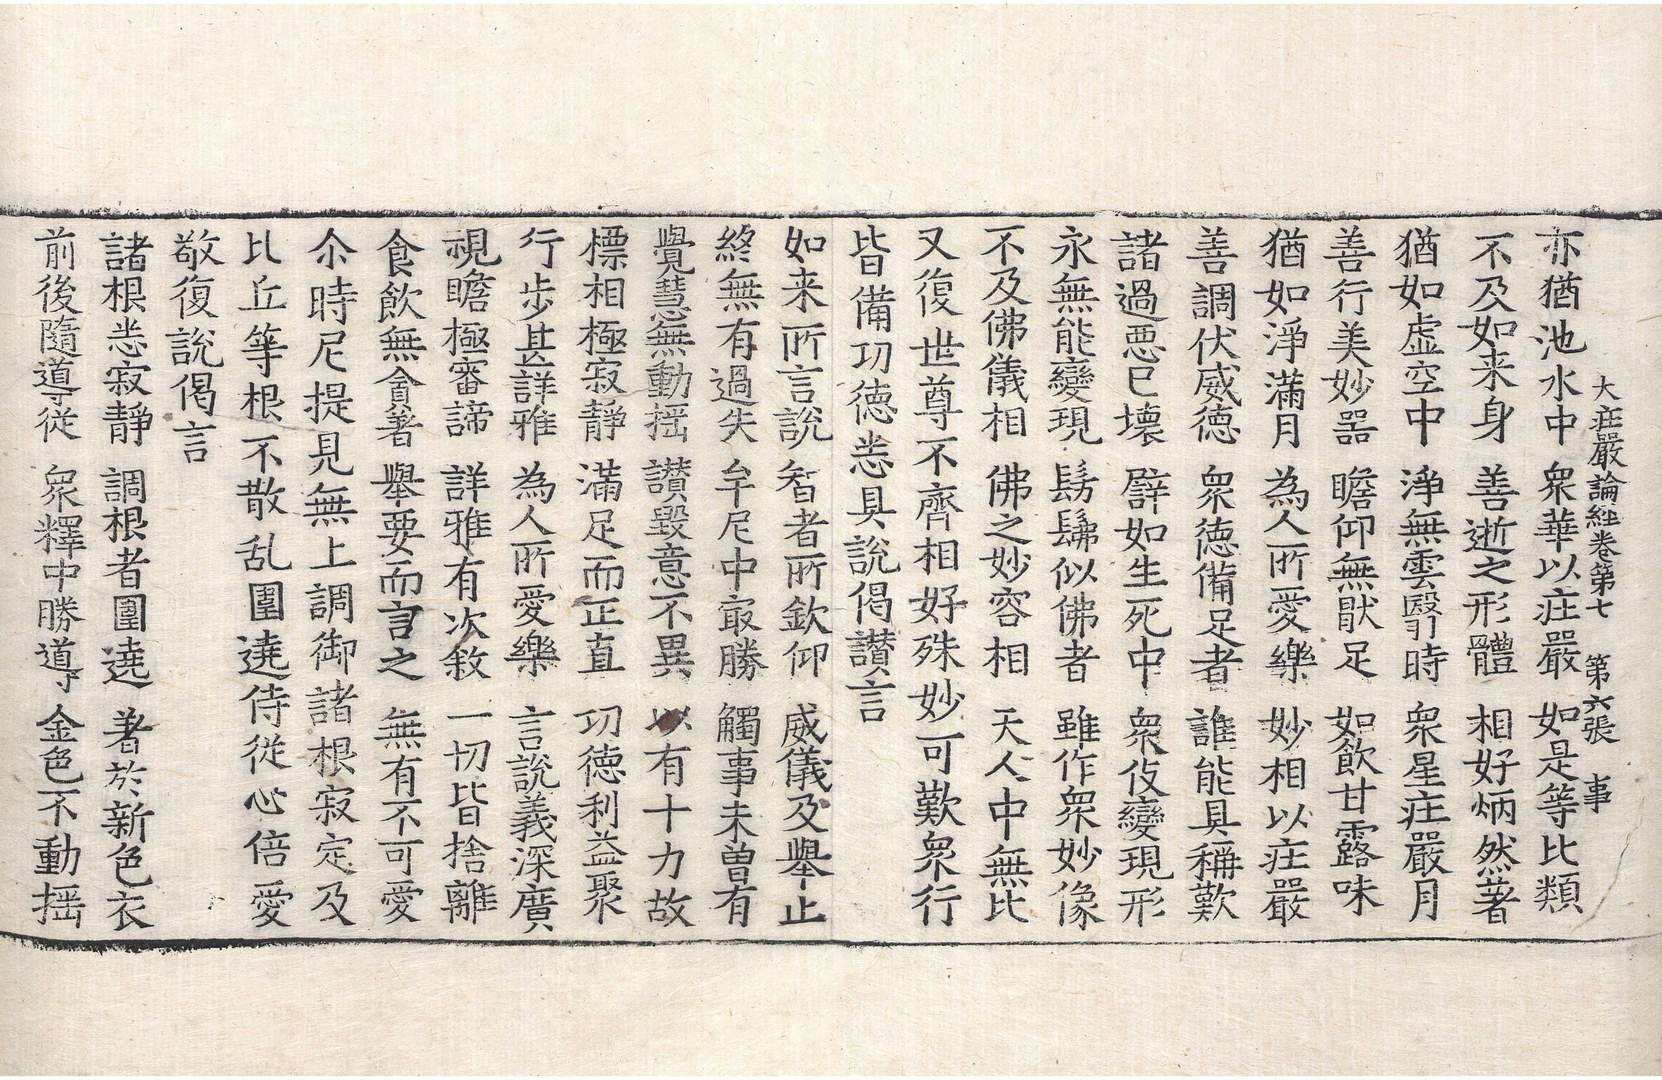 大荘嚴論經卷第七　第六張　事
亦猶池水中　衆華以荘嚴　如是等比類
不及如来身　善逝之形體　相好炳然著
猶如虚空中　淨無雲翳時　衆星荘嚴月
善行美妙器　瞻仰無猒足　如飲甘露味
猶如淨滿月　為人所愛樂　妙相以荘嚴
善調伏威德　衆德備足者　誰能具稱歎
諸過惡已壞　譬如生死中　衆伎變現形
永無能變現　髣髴似佛者　雖作衆妙像
不及佛儀相　佛之妙容相　天人中無比
又復世尊不齊相好殊妙可歎衆行
皆備功德悉具說偈讃言
如来所言說　智者所欽仰　威儀及舉止
終無有過失　牟尼中㝡勝　觸事未曽有
覺慧無動揺　讃毀意不異　以有十力故
標相極寂靜　滿足而正直　功德利益聚
行步甚詳雅　為人所愛樂　言說義深廣
視瞻極審諦　詳雅有次敘　一切皆捨離
食飲無貪著　舉要而言之　無有不可愛
尒時尼提見無上調御諸根寂定及
比丘等根不散乱圍遶侍從心倍愛
敬復說偈言
諸根悉寂靜　調根者圍遶　著於新色衣
前後隨導從　衆釋中勝導　金色不動揺